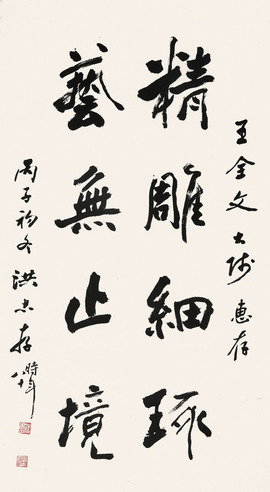 王金文大师惠存
精雕細琢
藝無止境
丙子初冬洪志存